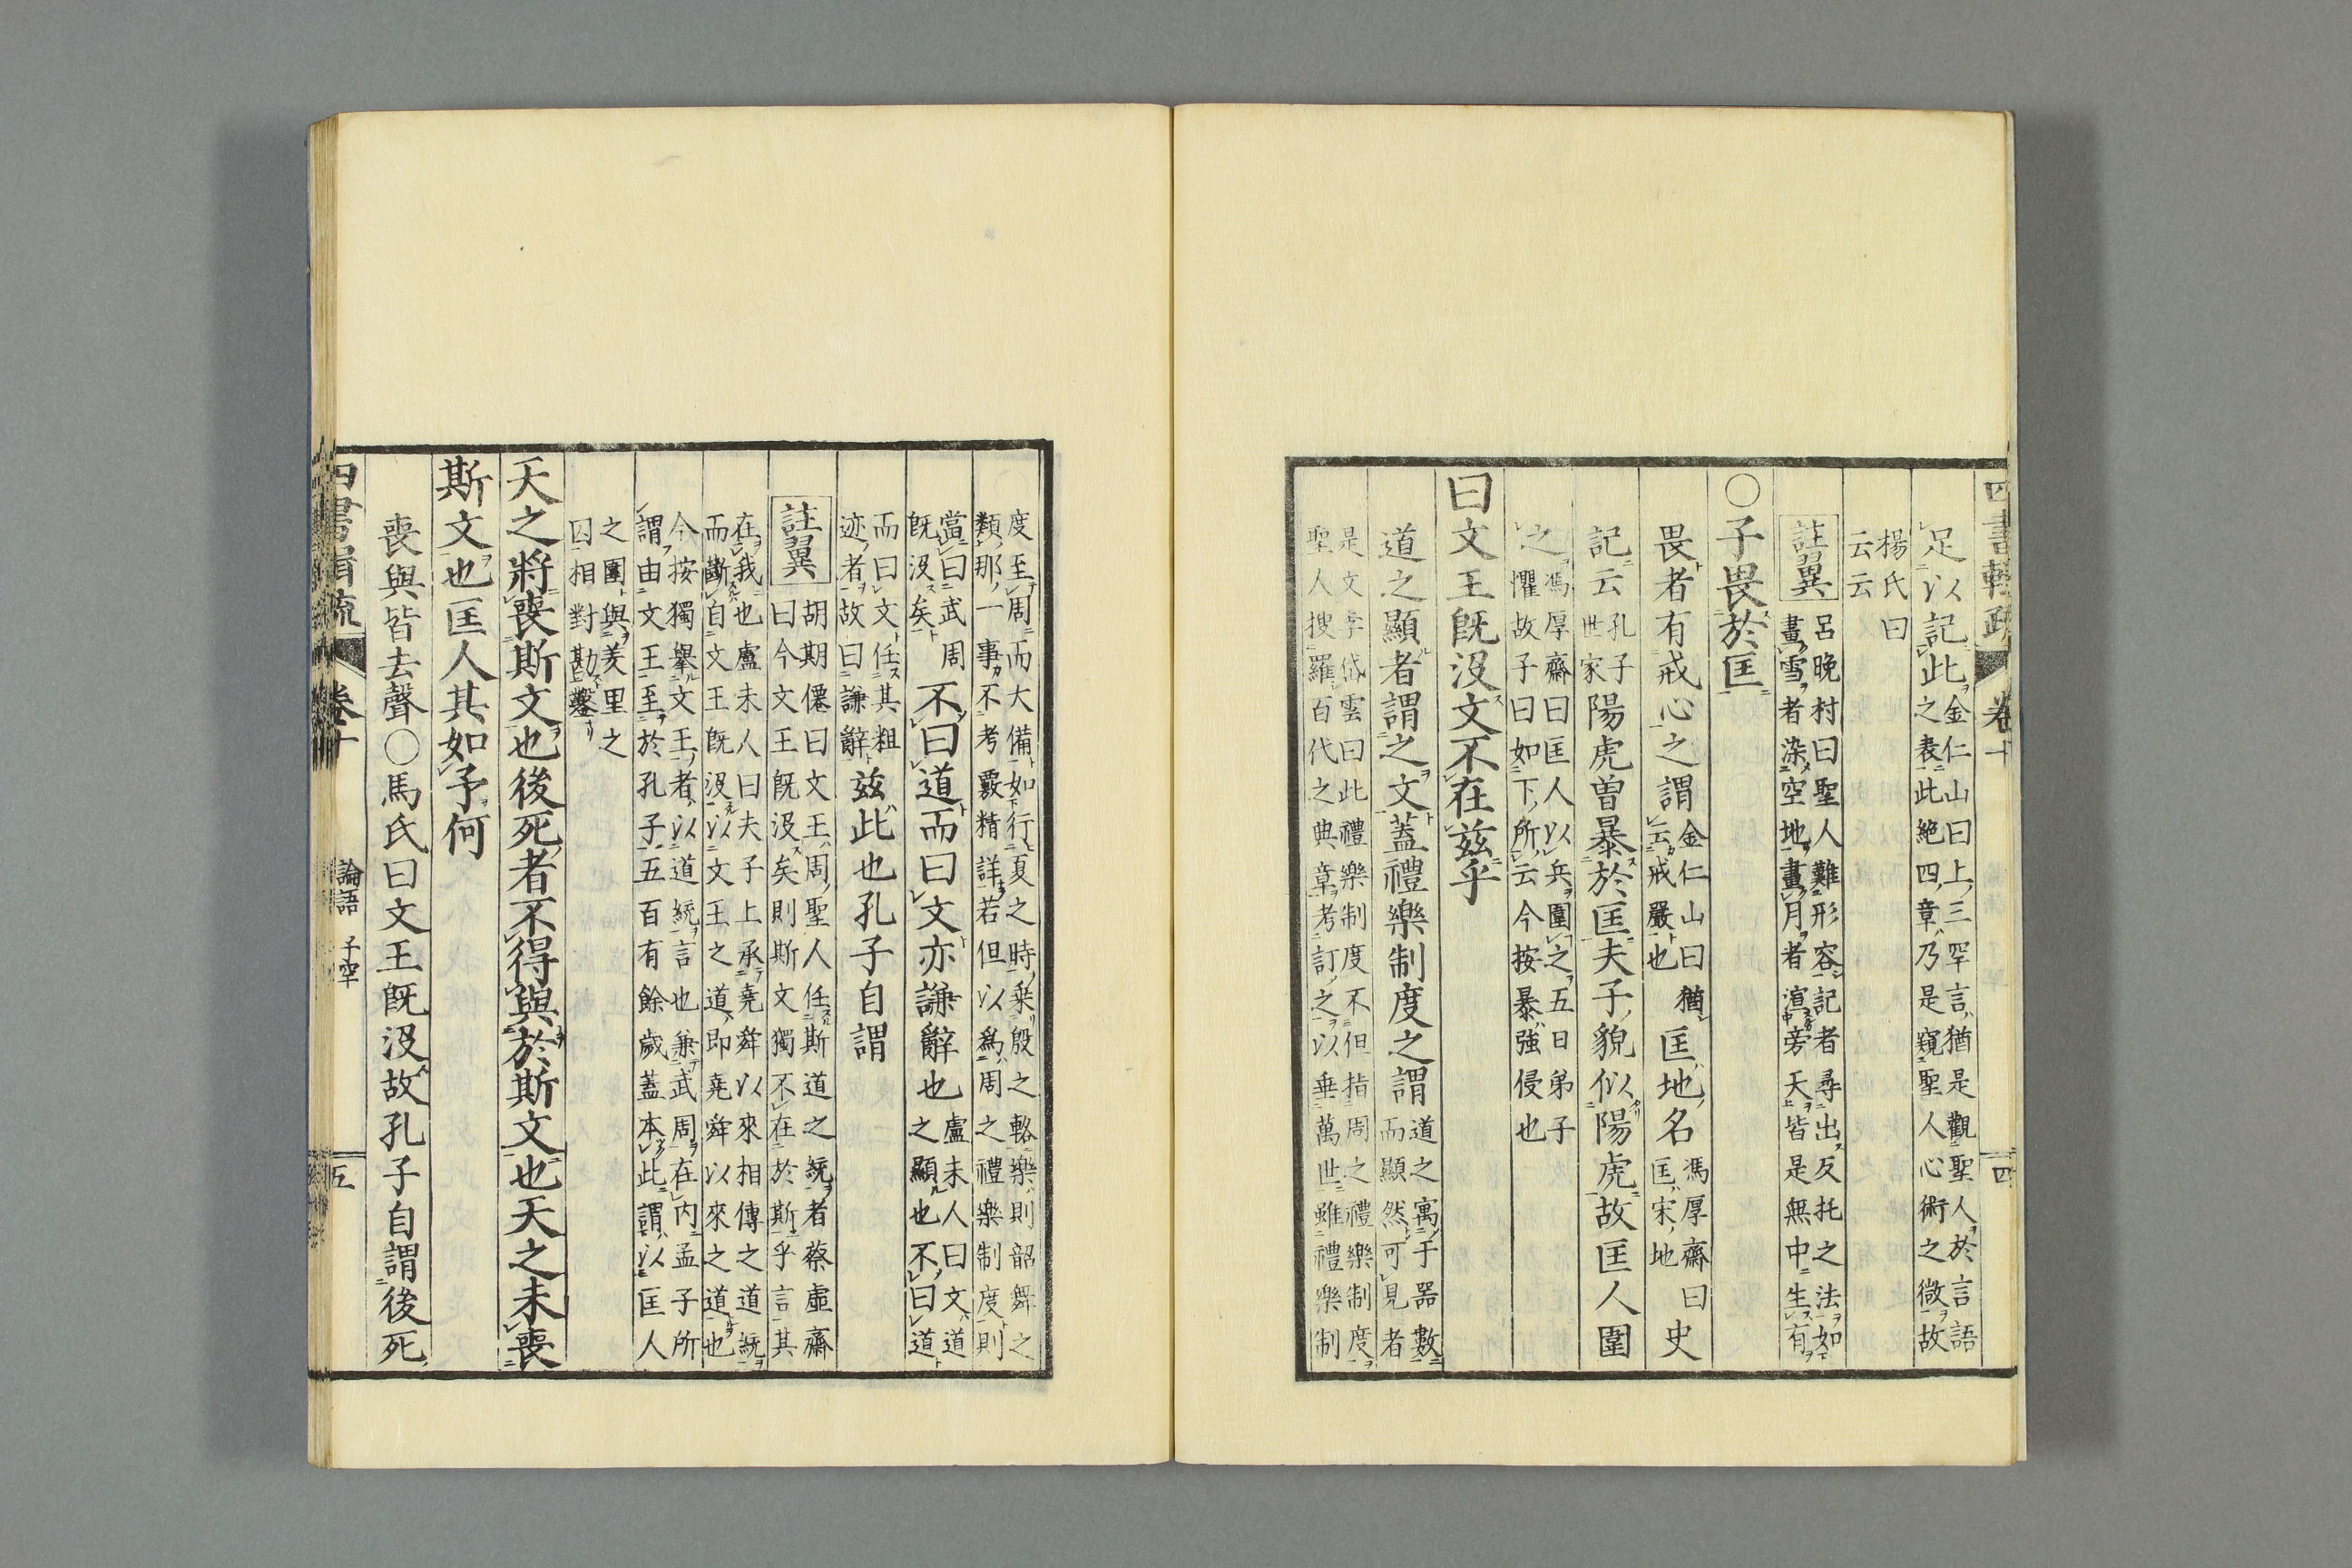 四書輯疏 卷十 四
足以記此金仁山曰上三罕言猶是觀聖人於言語
之表此絶四章乃是窺聖人心術之微故
楊氏曰
云云
註翼 呂晚村曰聖人難形容記者尋出反托之法如
畫雪者染空地畫月者渲旁天皆是無中生有
○子畏於匡
畏者有戒心之謂金仁山曰猶
云戒嚴也匡地名馮厚齋曰
匡宋地史
記云孔子
世家陽虎曾暴於匡夫子貌似陽虎故匡人圍
之馮厚齋曰匡人以兵圍之五日弟子
懼故子曰如下所云今按暴強侵也
曰文王既沒文不在茲乎
道之顯者謂之文蓋禮樂制度之謂道之寓于器數
而顯然可見者
是文李岱雲曰此禮樂制度不但指周之禮樂制度
聖人搜羅百代之典章考訂之以垂萬世雖禮樂制
度至周而大備如行夏之時乘殷之輅樂則韶舞之
類那一事不考覈精詳若但以爲周之禮樂制度則
當曰武周
既沒矣不曰道而曰文亦謙辭也盧未人曰文道
之顯也不曰道
而曰文任其粗
迹者故曰謙辭茲此也孔子自謂
註翼 胡期僊曰文王周聖人任斯道之統者蔡虛齋
曰今文王既沒矣則斯文獨不在於斯乎言其
在我也盧未人曰夫子上承堯舜以來相傳之道統
而斷自文王既沒以文王之道即堯舜以來之道也
今按獨舉文王者以道統言也兼武周在內孟子所
謂由文王至於孔子五百有餘歲蓋本此謂以匡人
之圍與羑里之
囚相對勘鑿
天之將喪斯文也後死者不得與於斯文也天之未喪
斯文也匡人其如予何
喪與皆去聲○馬氏曰文王既沒故孔子自謂後死
四書輯疏 卷十 論語 子罕 五